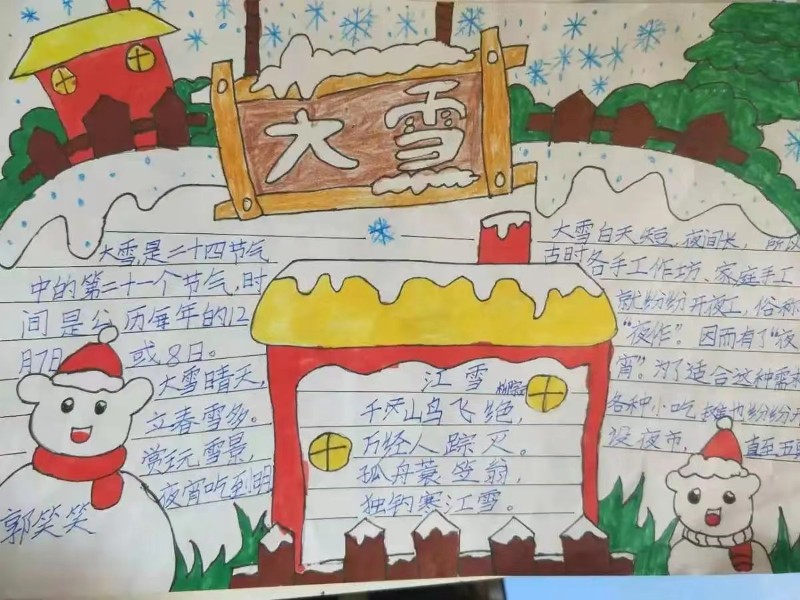 大雪
大雪是二十四节气
中的第二十一个节气,时
间是公历每年的12
月7日或8日。
大雪晴天,
立春雪多。
赏玩雪景,
夜宵吃到明
郭笑笑
江雪
千山鸟飞绝,
万径人踪灭。
孤舟蓑笠翁,
独钓寒江雪。
大雪白天短,夜间长,所以
古时各手工作坊、家庭手工
就纷纷开夜工,俗称
“夜作”。因而有了“夜
宵”。为了适合这种需求
各种小吃摊也纷纷开
设夜市,直至五更